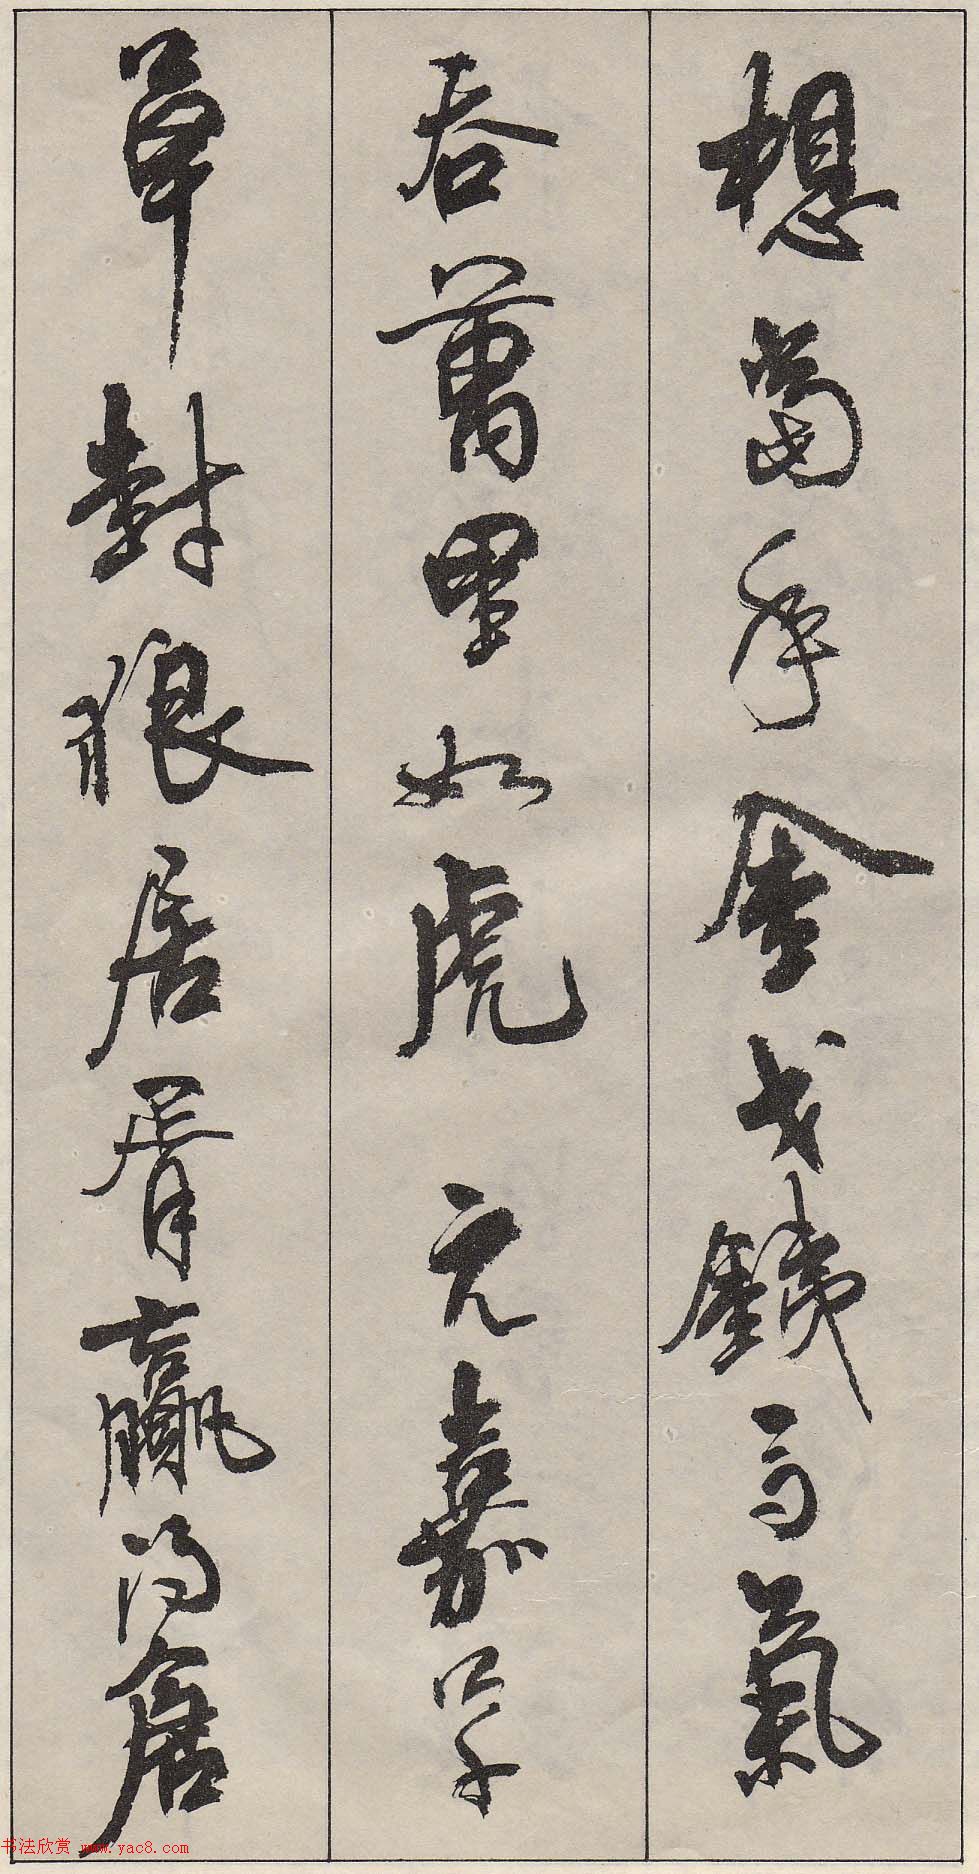 想當年金戈銕馬氣
吞萬里如虎元嘉草
草封狼居胥贏得倉
书法欣赏 www.yac8.com